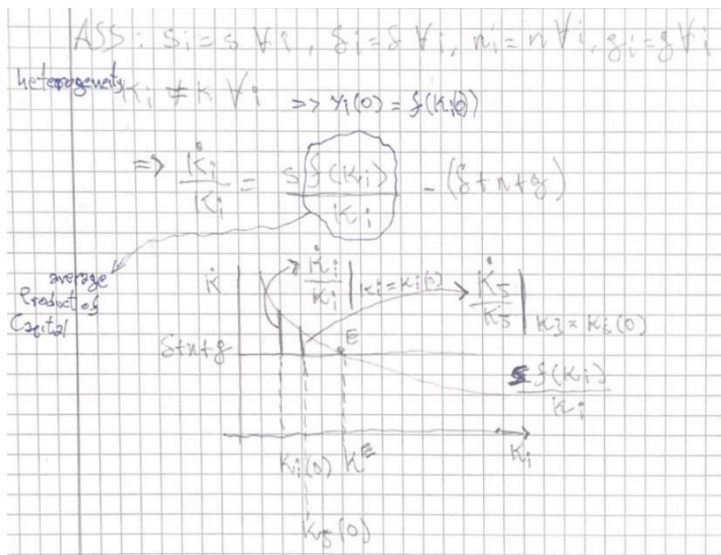 ASS: si = s ∀i, δi = δ ∀i, ni = n ∀i, gi = g ∀i
heterogeneity Ki ≠ K ∀i => yi(0) = f(Ki(0))
=> K̇i/Ki = s f(Ki)/Ki - (δ+n+g)
average
Product of
Capital
K̇
K̇i/Ki |Ki = Ki(0)
K̇5/K5 |K5 = K5(0)
δ+n+g
E
s f(Ki)/Ki
Ki(0) K^E
Ki
K5(0)